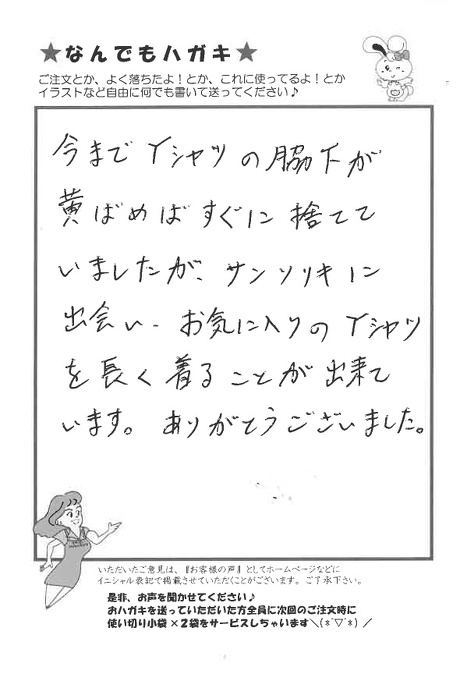 ★なんでもハガキ★
ご注文とか、よく落ちたよ！とか、これに使ってるよ！とか
イラストなど自由に何でも書いて送ってください♪
今までYシャツの脇下が
黄ばめばすぐに捨てて
いましたが、サンソリキに
出会い、お気に入りのYシャツ
を長く着ることが出来て
います。ありがとうございました。
いただいたご意見は、『お客様の声』としてホームページなどに
イニシャル表記で掲載させていただくことがございます。ご了承下さい。
是非、お声を聞かせてください♪
おハガキを送っていただいた方全員に次回のご注文時に
使い切り小袋×2袋をサービスしちゃいます＼(*ﾟ▽ﾟ*)／